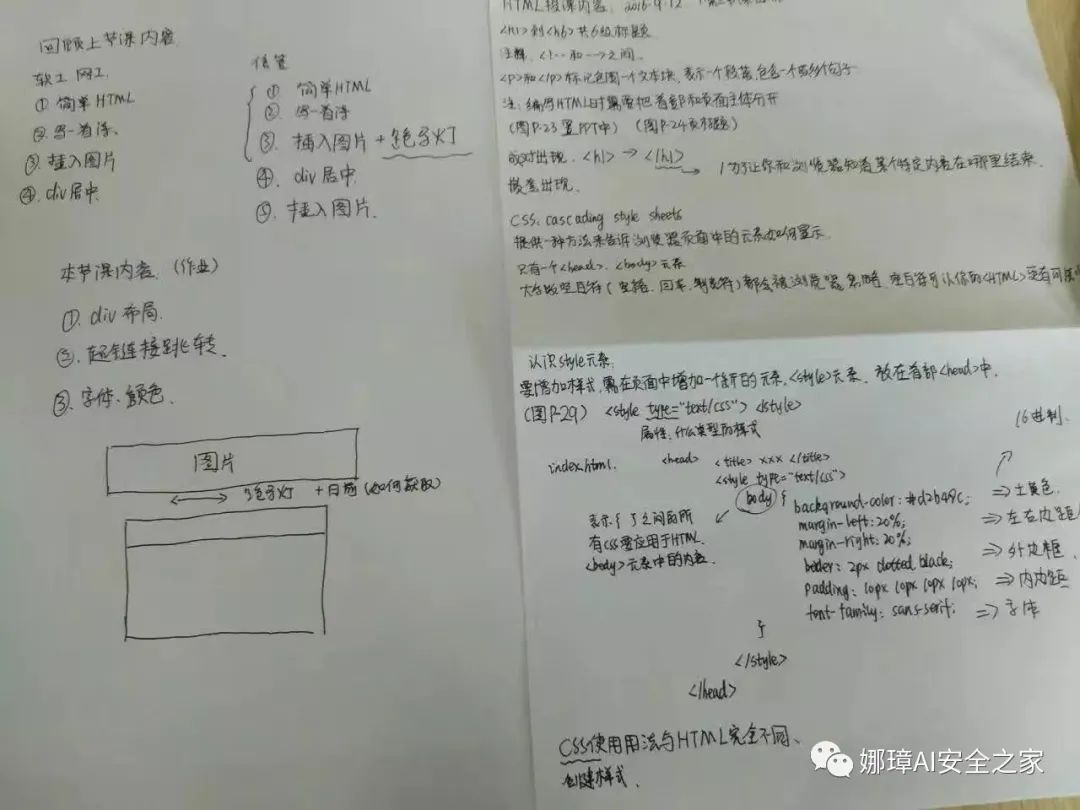 回顾上节课内容
软工 网工
① 简单HTML
② 写一首诗.
③ 插入图片
④ div居中.
信管
① 简单HTML
② 写一首诗
③ 插入图片 +
④ div居中
⑤ 插入图片.
本节课内容. (作业)
① div布局.
② 超链接跳转.
③ 字体、颜色.
图片
灯 +日历 (如何获取)
HTML授课内容. 2016.9.12
<h1>到<h6>共6级标题
注释. <!-- 和 --> 之间.
<p>和</p>标记包围一个文本块. 表示一个段落, 包含一个或多个句子.
注: 编写HTML时需要把首部和页面主体分开
(图P-23 置PPT中) (图P-24页标题)
成对出现. <h1> → </h1> → 为了让你和浏览器知道某个特定内容在哪里结束.
嵌套出现.
CSS. cascading style sheets
提供一种方法来告诉浏览器页面中的元素如何显示.
只有一个<head>. <body>元素
大多数空白符 (空格、回车、制表符) 都会被浏览器忽略. 空白符可以让你的<HTML>更有可读
认识style元素.
要增加样式, 需在页面中增加一个新的元素. <style>元素. 放在首部<head>中.
(图P-29) <style type="text/css"> </style>
属性: 什么类型的样式
16进制.
index.html. <head> <title> xxx </title>
<style type="text/css">
body {
background-color: #d2b48c; => 土黄色.
margin-left: 20%; => 左右边距
margin-right: 20%;
border: 2px dotted black; => 外边框
padding: 10px 10px 10px 10px; => 内边距
font-family: sans-serif; => 字体
表示{ }之间的所
有CSS要应用于HTML.
<body>元素中的内容.
}
</style>
</head>
CSS使用用法与HTML完全不同、
创建样式.
娜璋AI安全之家